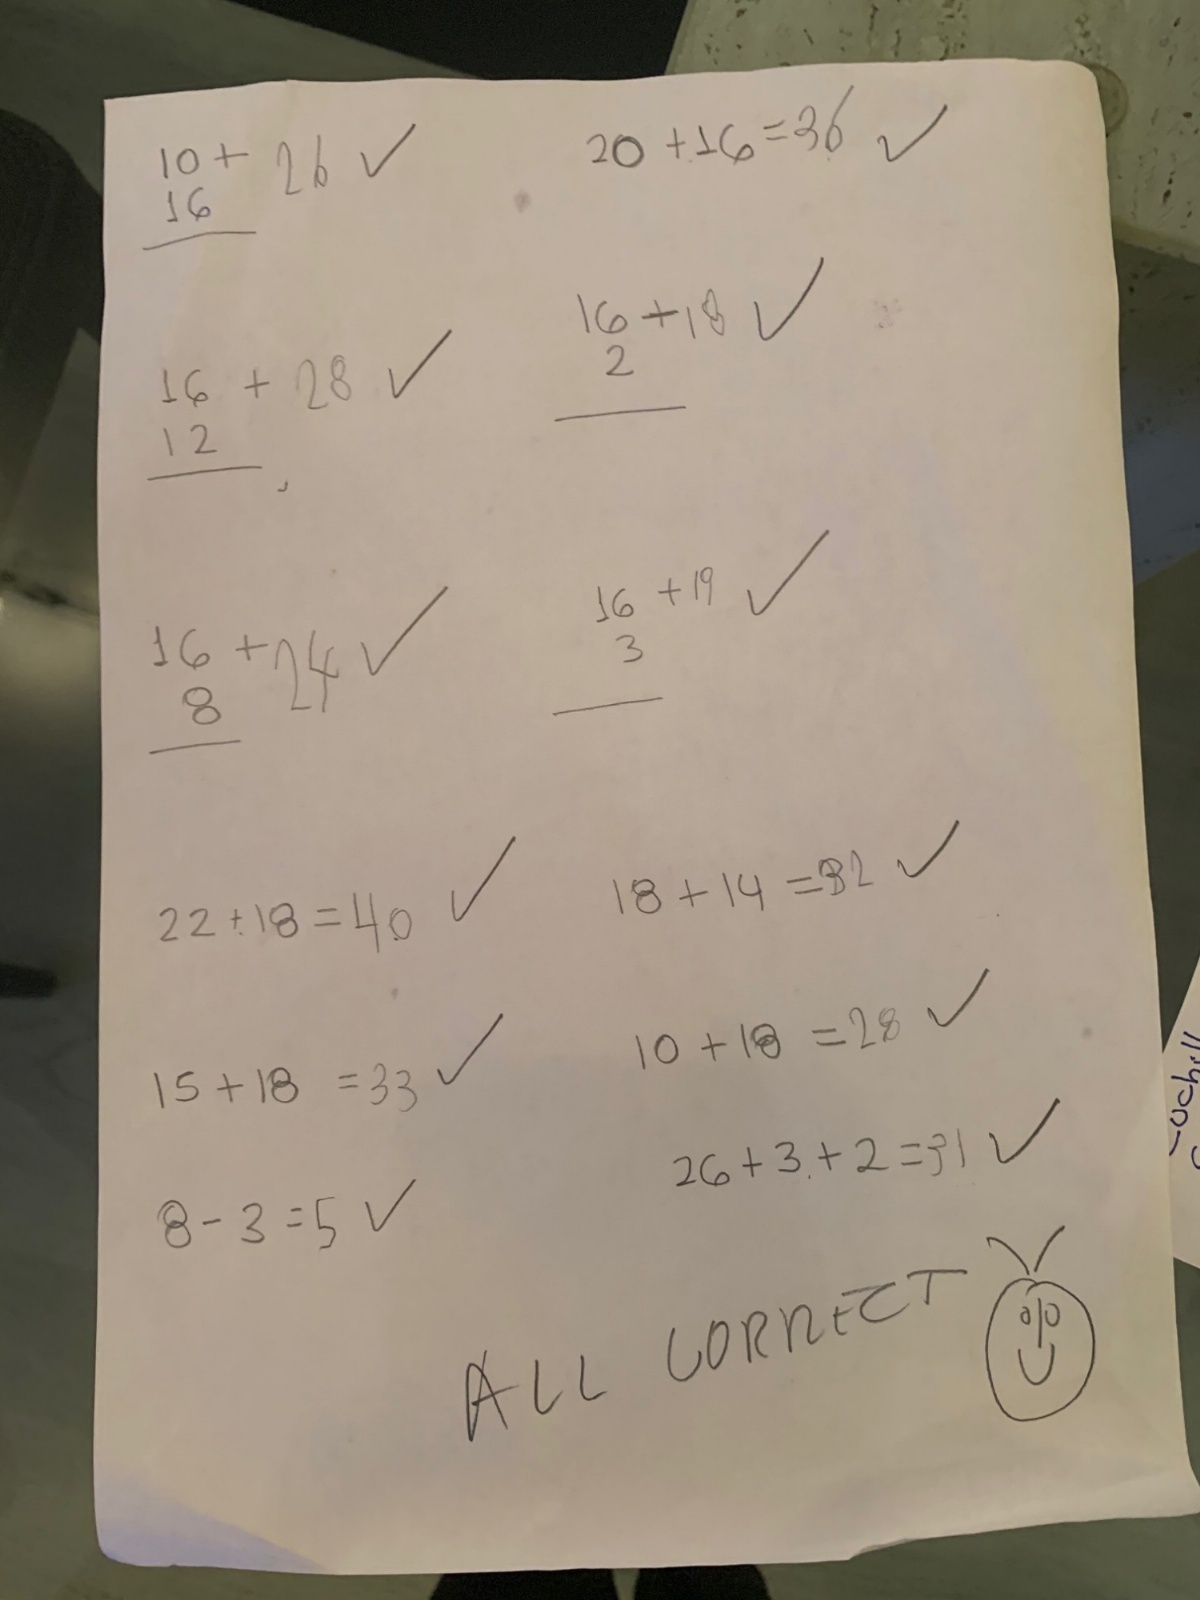 10 + 26 ✓
16
20 + 16 = 36 ✓
16 + 28 ✓
12
16 + 18 ✓
2
16 + 24 ✓
8
16 + 19 ✓
3
22 + 18 = 40 ✓
18 + 14 = 32 ✓
15 + 18 = 33 ✓
10 + 18 = 28 ✓
26 + 3 + 2 = 31 ✓
8 - 3 = 5 ✓
ALL CORRECT